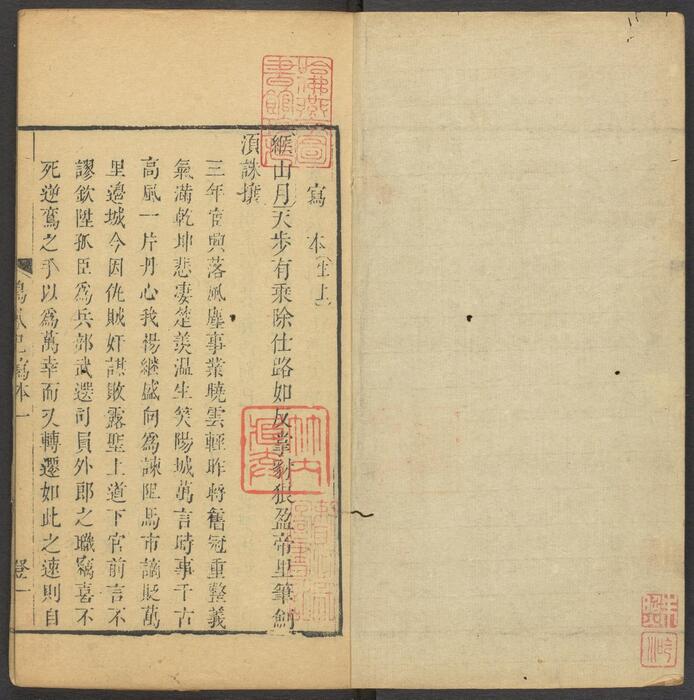 寫本(生上)
緱山月天步有乘除仕路如反掌豺狼盈帝里筆劍
須誅攘
三年官興落風塵事業曉雲輕昨暫舊冠重整義
氣滿乾坤悲凄楚羨温生笑陽城萬言時事千古
高風一片丹心我楊繼盛向為諫阻馬市謫貶萬
里邊城今因仇賊奸謀敗露聖上道下官前言不
謬欽陞孤臣爲兵部武選司員外郎之職竊喜不
死逆鸞之手以爲萬幸而又轉遷如此之速則自
鳴鳳記寫本一
登一
哈佛燕